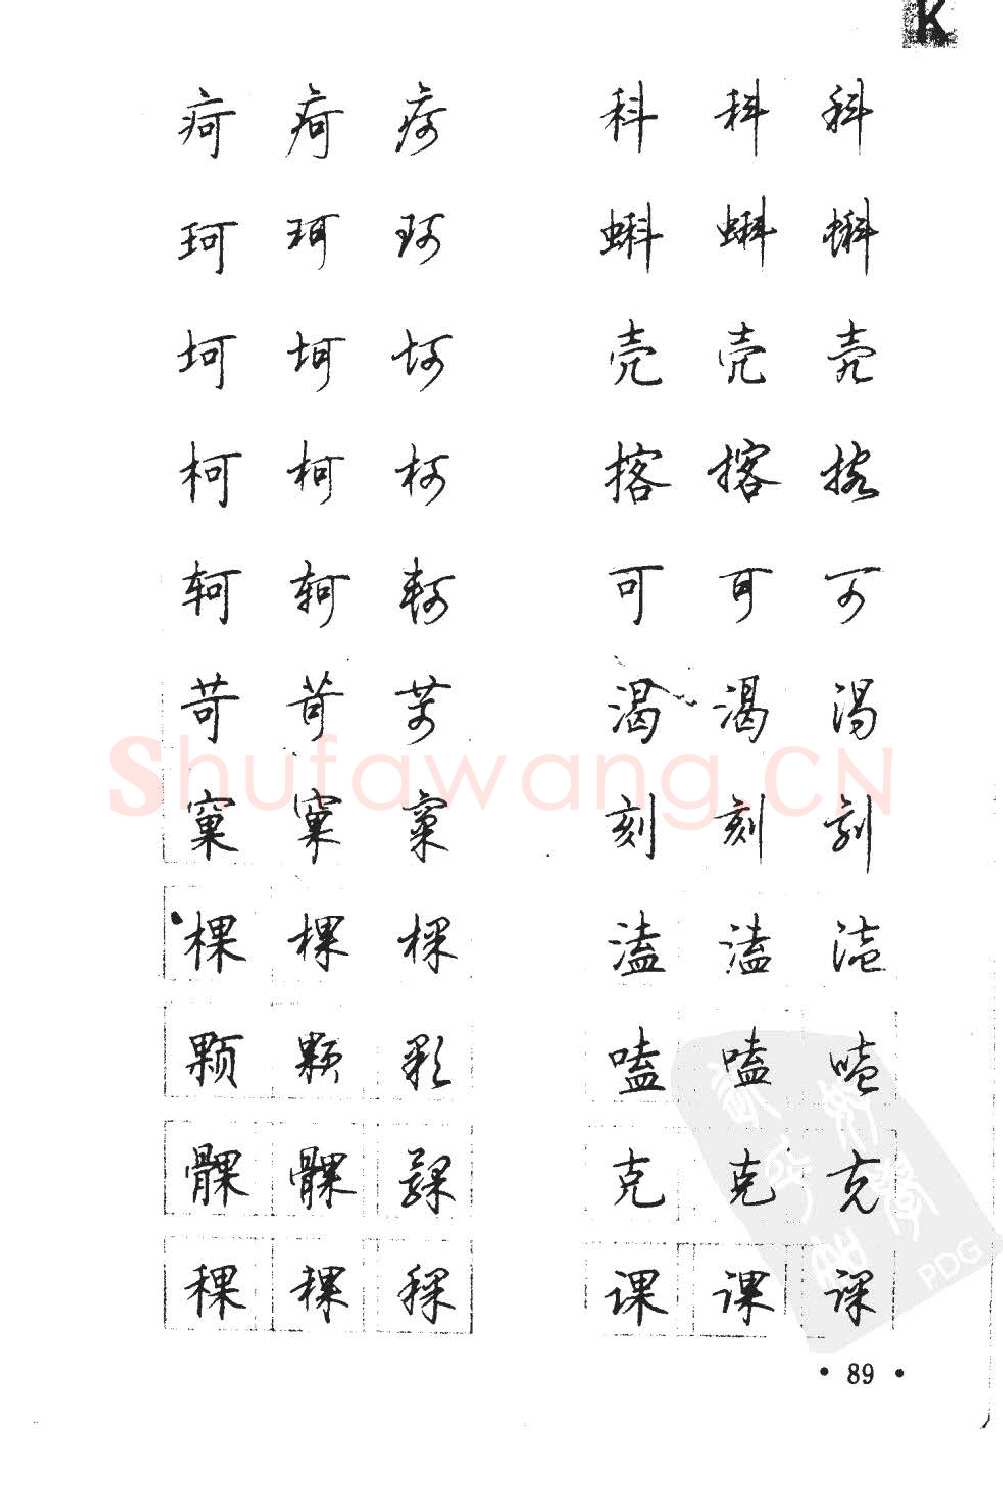 K
疴 疴 疴 科 科 科
珂 珂 珂 蝌 蝌 蝌
坷 坷 坷 壳 壳 壳
柯 柯 柯 搭 搭 搭
轲 轲 轲 可 可 可
苛 苛 苛 渴 渴 渴
窠 窠 窠 刻 刻 刻
棵 棵 棵 溘 溘 溘
颗 颗 颗 嗑 嗑 嗑
髁 髁 髁 克 克 克
稞 稞 稞 课 课 课
Shufawang.CN
PDG
• 89 •